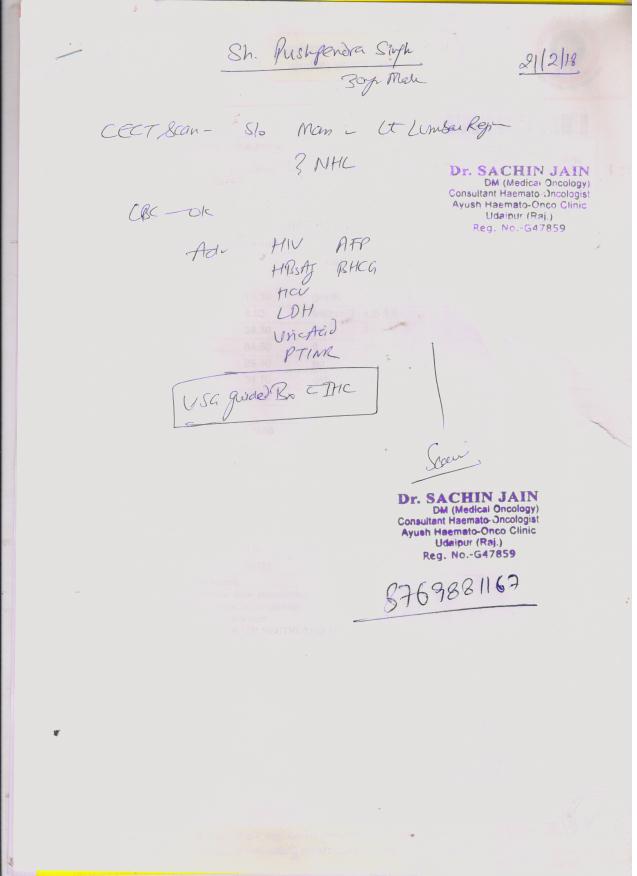 Sh. Pushpendra Singh
21/2/18
30yr Male
CECT Scan - S/o Mass in Lt Lumbar Region
? NHL
Dr. SACHIN JAIN
DM (Medical Oncology)
Consultant Haemato-Oncologist
Ayush Haemato-Onco Clinic
Udaipur (Raj.)
Reg. No.-G47859
CBC - OK
Adv HIV AFP
HBsAg BHCG
HCV
LDH
Uric Acid
PTINR
USG guided Bx c IHC
Dr. SACHIN JAIN
DM (Medical Oncology)
Consultant Haemato-Oncologist
Ayush Haemato-Onco Clinic
Udaipur (Raj.)
Reg. No.-G47859
8769881167